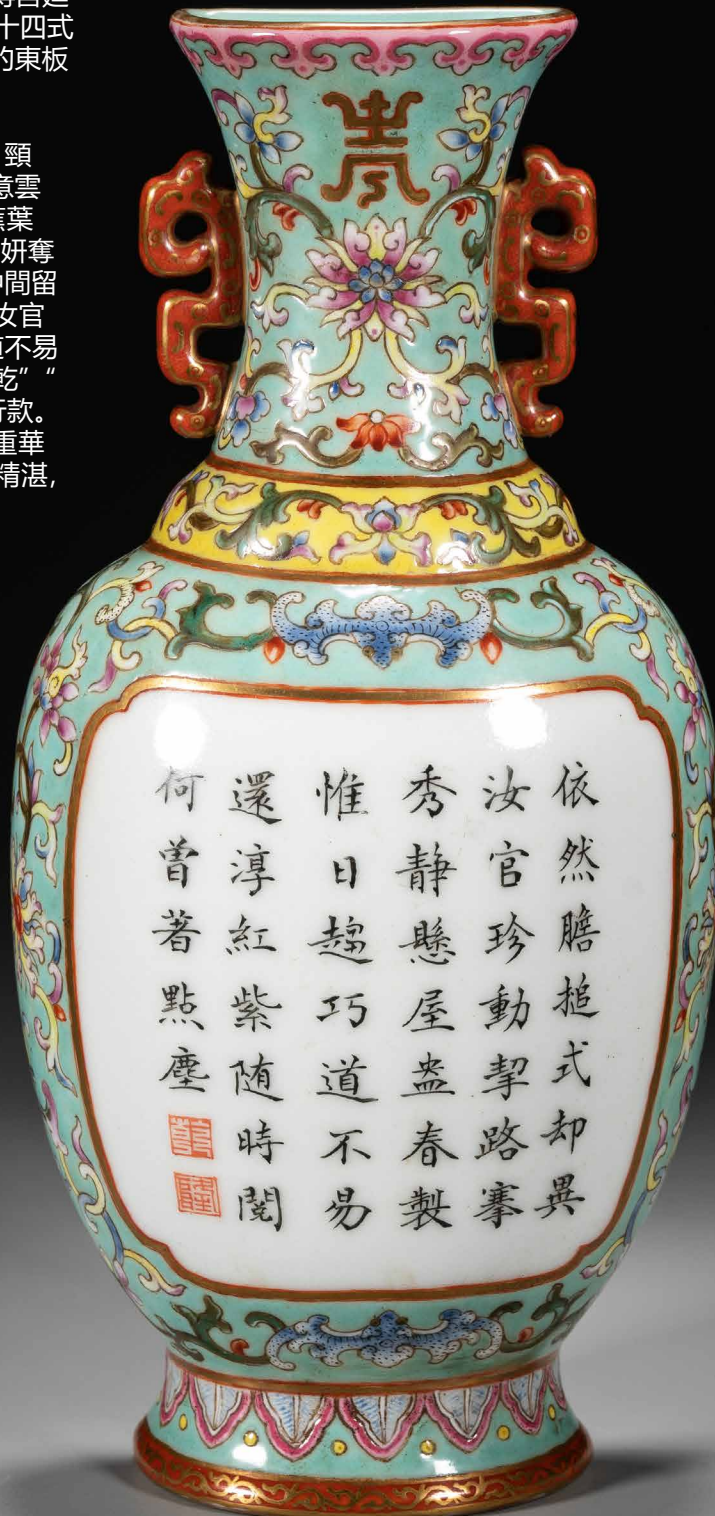 十四式
的東板
頸
意雲
蕉葉
妍奪
中間留
女官
道不易
乾” “
行款。
重華
精湛,
依然膽搥式却異
汝官珍動挈路搴
秀静懸屋盎春製
惟日趨巧道不易
還淳紅紫随時閱
何曾著點塵
乾
隆